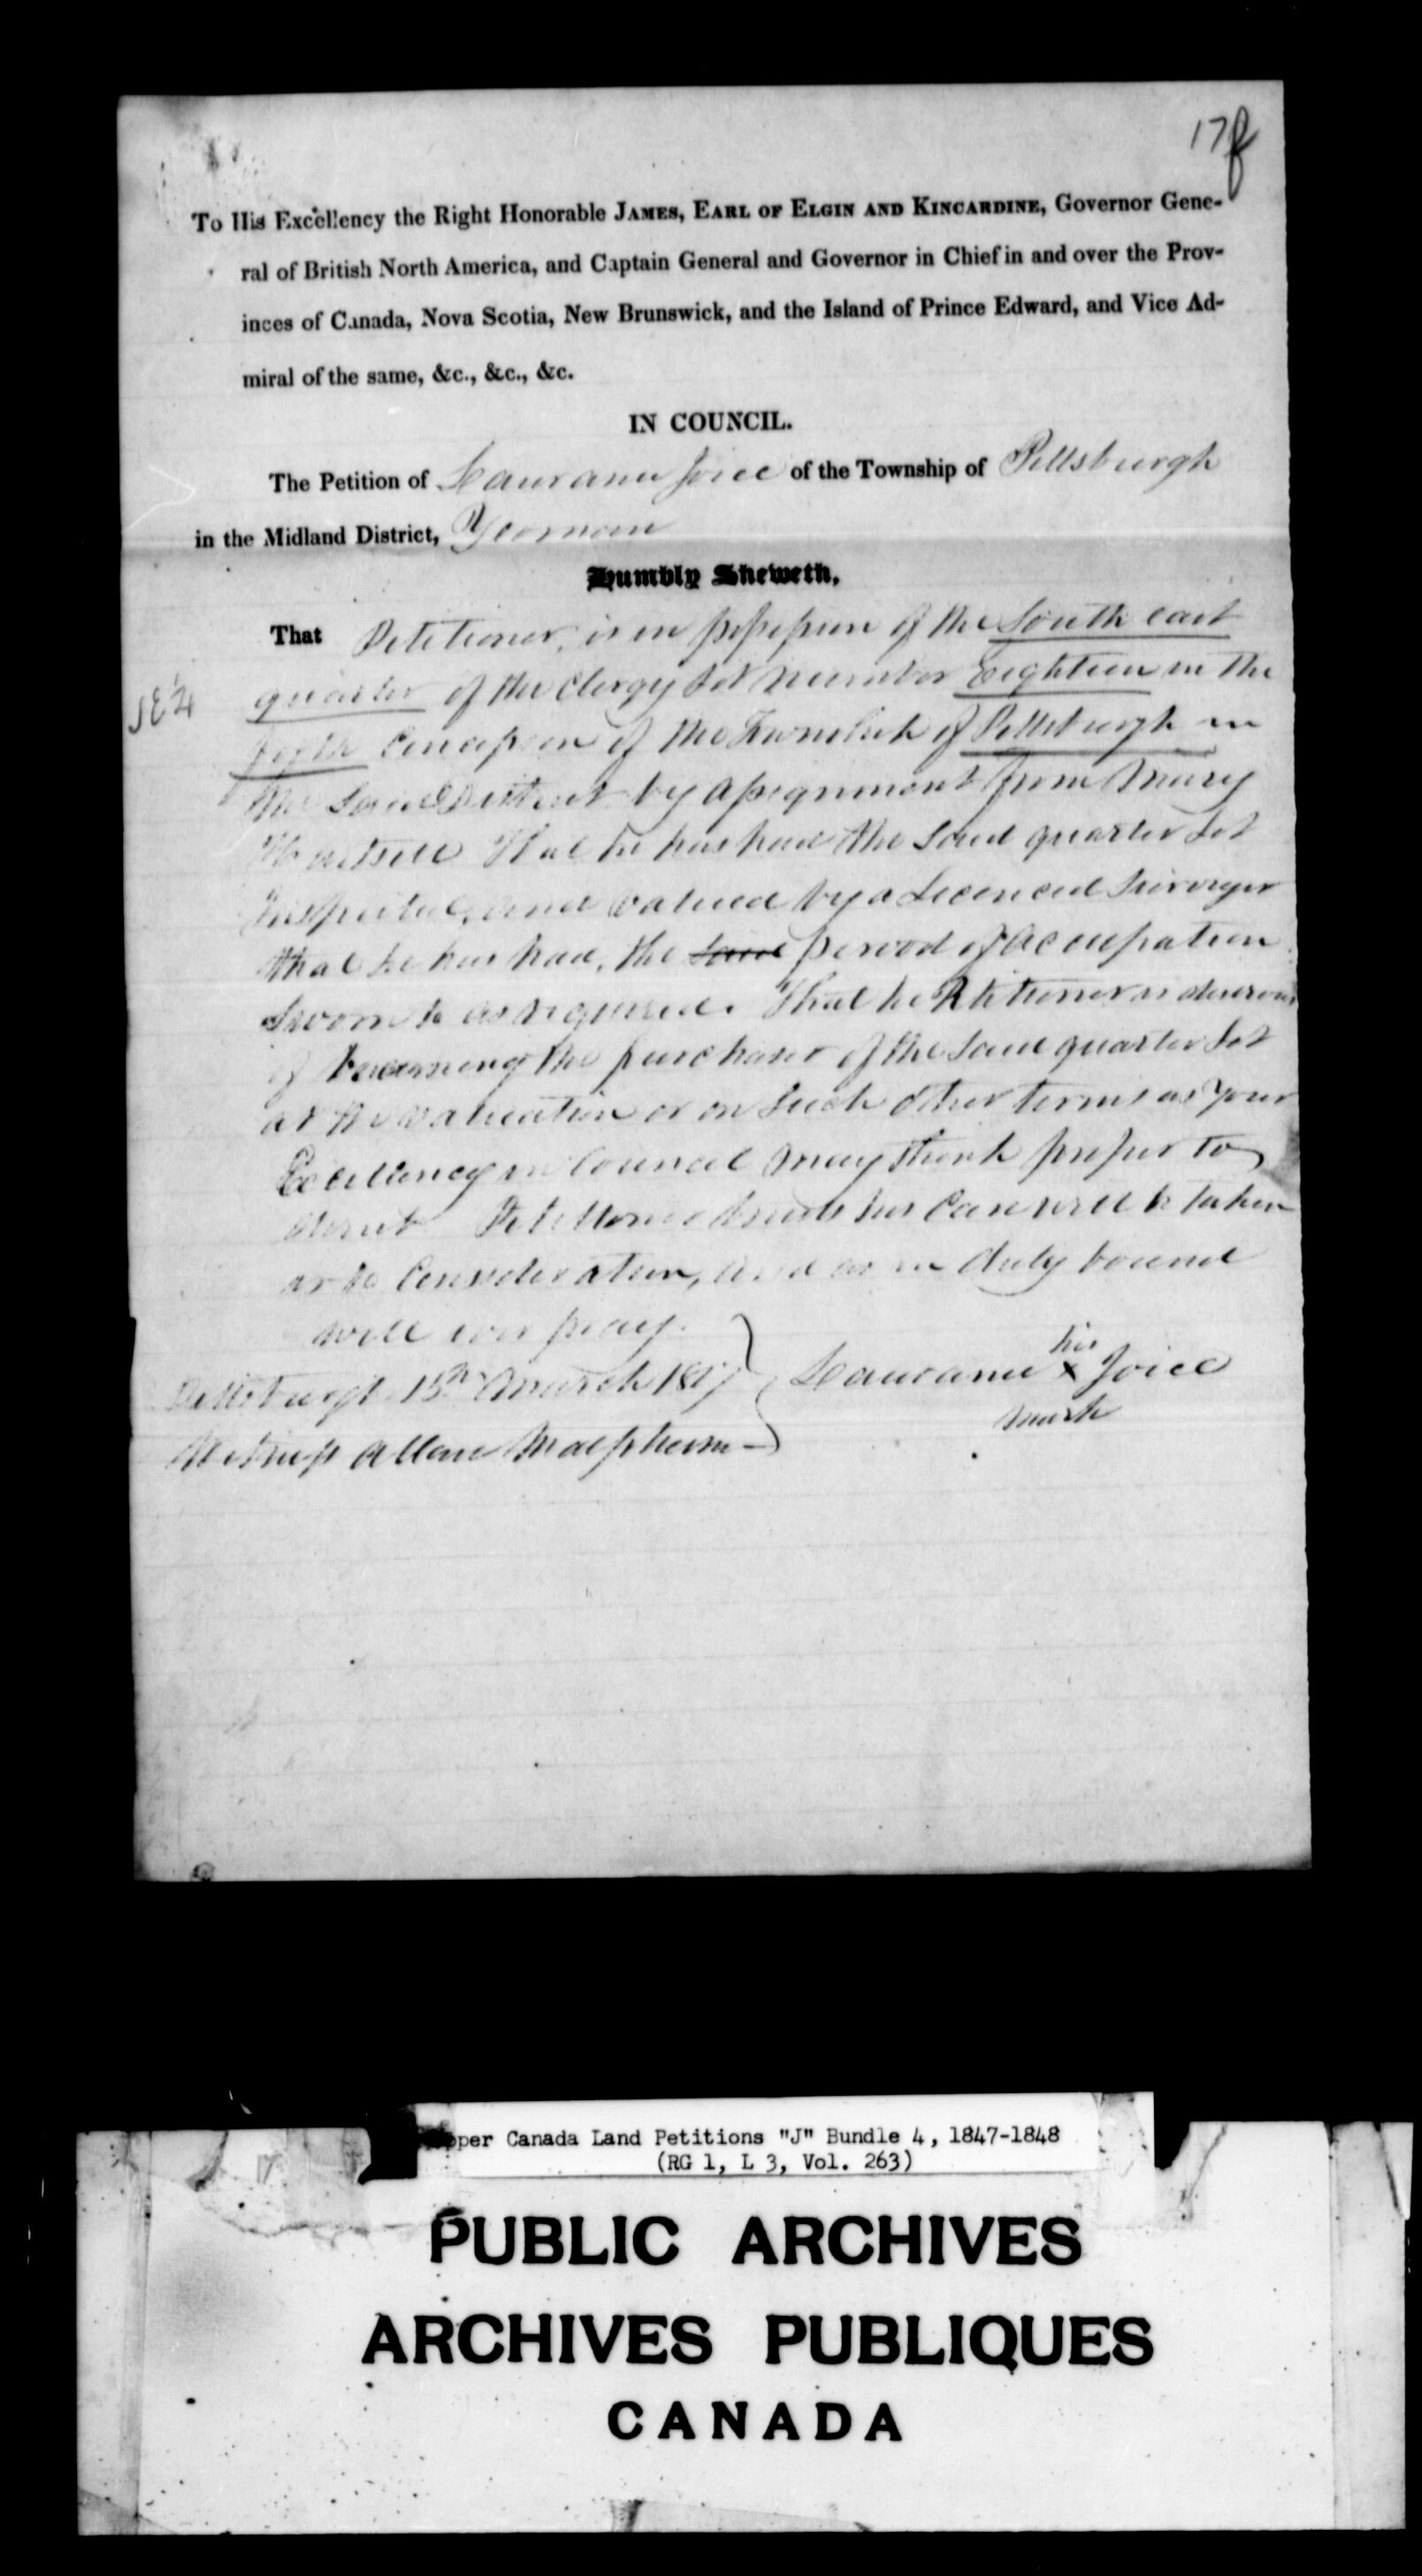 17f
To His Excellency the Right Honorable JAMES, EARL OF ELGIN AND KINCARDINE, Governor Gene-
ral of British North America, and Captain General and Governor in Chief in and over the Prov-
inces of Canada, Nova Scotia, New Brunswick, and the Island of Prince Edward, and Vice Ad-
miral of the same, &c., &c., &c.
IN COUNCIL.
The Petition of Laurance Joice of the Township of Pittsburgh
in the Midland District, Yeoman
Humbly Sheweth,
That Petitioner, is in possession of the South east
SE¼ quarter of the Clergy Lot number Eighteen in the
Concession of the Township of Pittsburgh in
the Said District by assignment from Mary
That he has had the Said quarter Lot
Inspected, and valued by a Licenced Surveyor
that he has had, the Said period of Occupation
Sworn to as required. That he Petitioner is desirous
of becoming the purchaser of the Said quarter Lot
at the valuation or on Such other terms as Your
Excellency in Council may think proper to
Petitioner trusts his Case will be taken
into Consideration, and as in duty bound
will ever pray.
Pittsburgh 15th March 1847
Laurance his x mark Joice
Witness Allan Macpherson
Upper Canada Land Petitions "J" Bundle 4, 1847-1848
(RG 1, L 3, Vol. 263)
PUBLIC ARCHIVES
ARCHIVES PUBLIQUES
CANADA